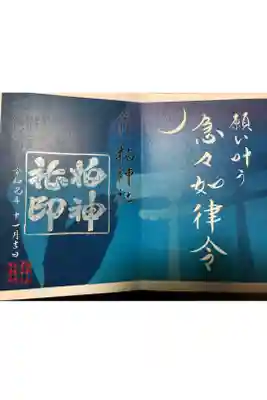 願い叶う
急々如律令
柏神社
柏神
社印
令和元年 十一月吉日